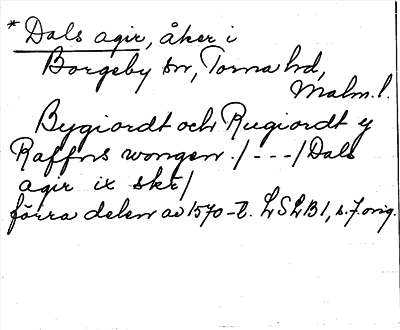 * Dals agir, åker i
Borgeby sn, Torna hd,
Malm. l.
Bygiordt och Rugiordt y
Raffns wongen. / - - - / Dals
agir ix skr /
förra delen av 1570-t. LSLB 1, s. 7. orig.